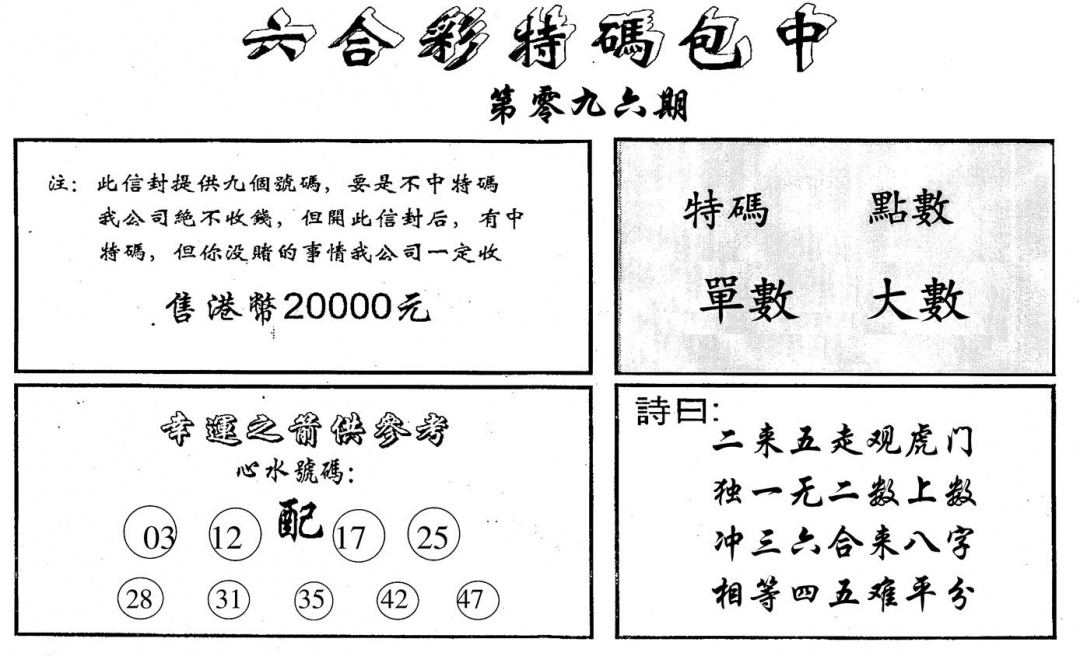 六合彩特碼包中
第零九六期
注：此信封提供九個號碼，要是不中特碼
我公司絕不收錢，但開此信封后，有中
特碼，但你没賭的事情我公司一定收
售港幣20000元
特碼 點數
單數 大數
幸運之箭供參考
心水號碼：
配
03 12 17 25
28 31 35 42 47
詩曰：
二来五走观虎门
独一无二数上数
冲三六合来八字
相等四五难平分